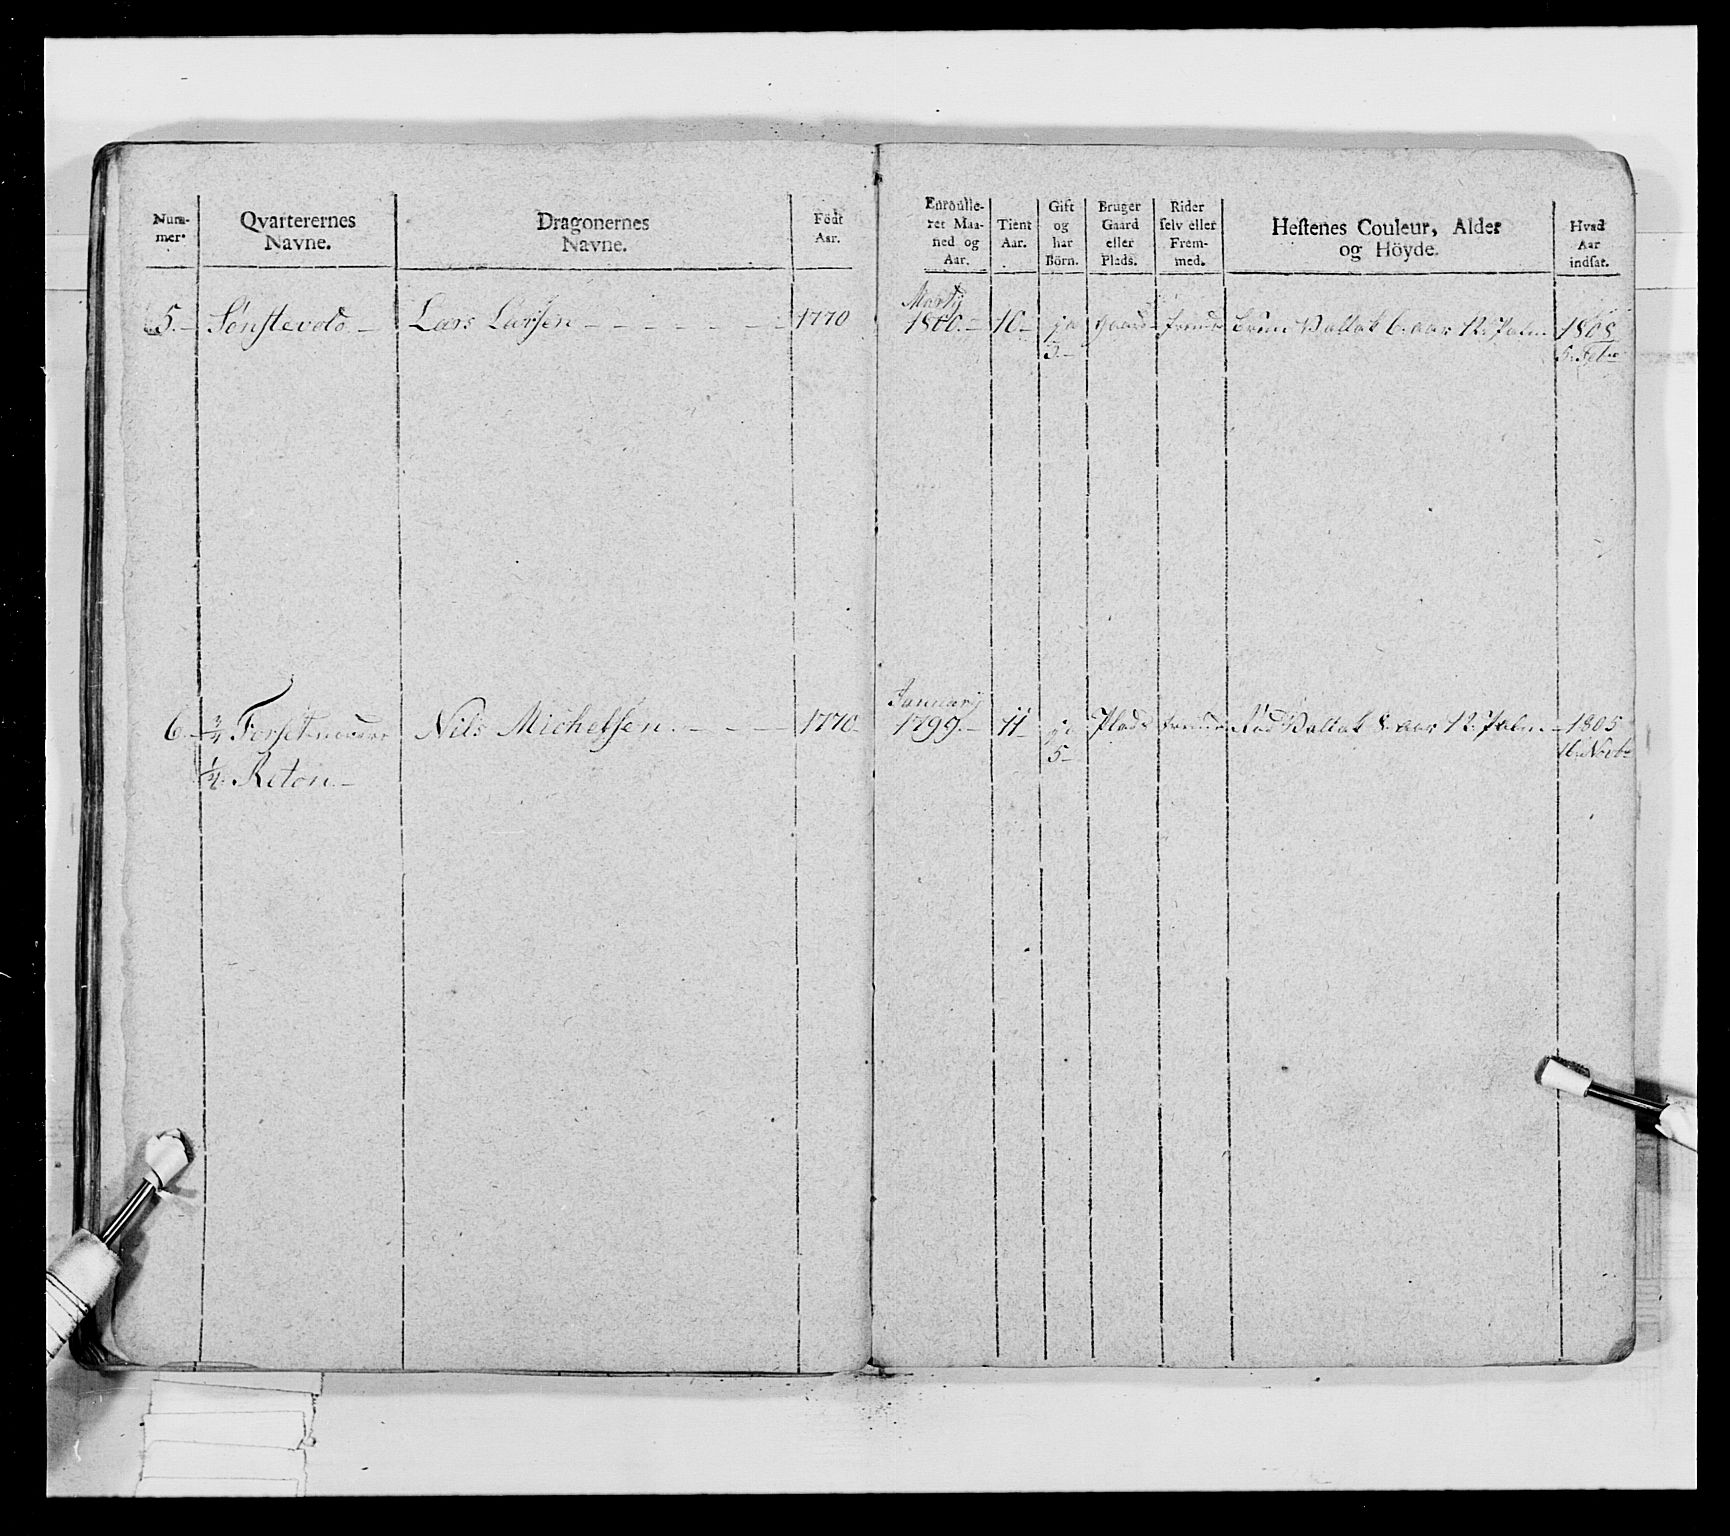 Num-
mer.
Qvarterernes
Navne.
Dragonernes
Navne.
Födt
Aar.
Enroulle-
ret Maa-
ned og
Aar.
Tient
Aar.
Gift
og
har
Börn.
Bruger
Gaard
eller
Plads.
Rider
selv eller
Frem-
med.
Hestenes Couleur, Alder
og Höyde.
Hvad
Aar
indsat.
5. Sönstevold Lars Larsen 1770 Martÿ 1800. 10 ja 3 Gaard fremd brun Vallak 6 aar 12 Palm 1808 5 Feb
6. 3/4 Forset Nils Michelsen 1770 Januarÿ 1799. 11 ja 5 Plads fremd Röd Vallak 8 aar 12 Palm 1805 16 Novb
1/4 Reton